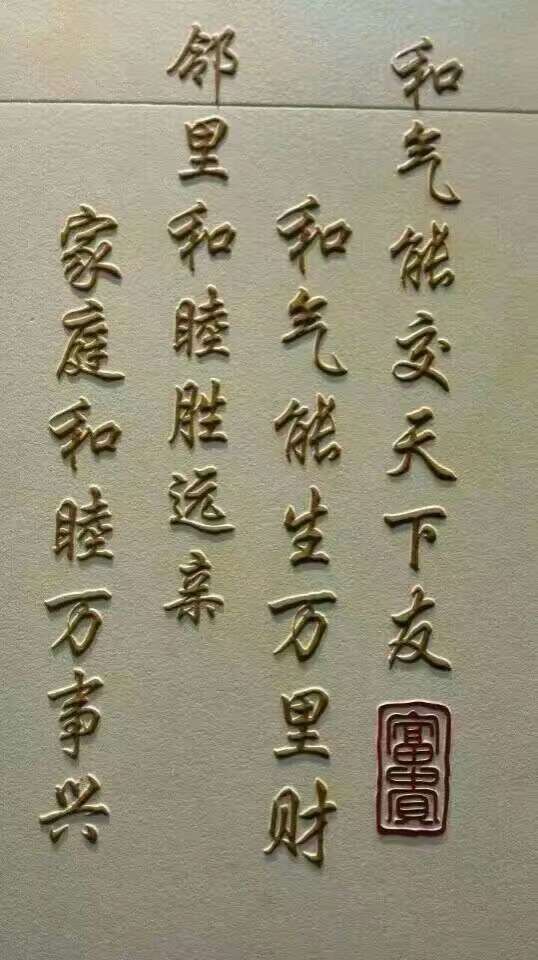 和气能交天下友
和气能生万里财
邻里和睦胜远亲
家庭和睦万事兴
富貴